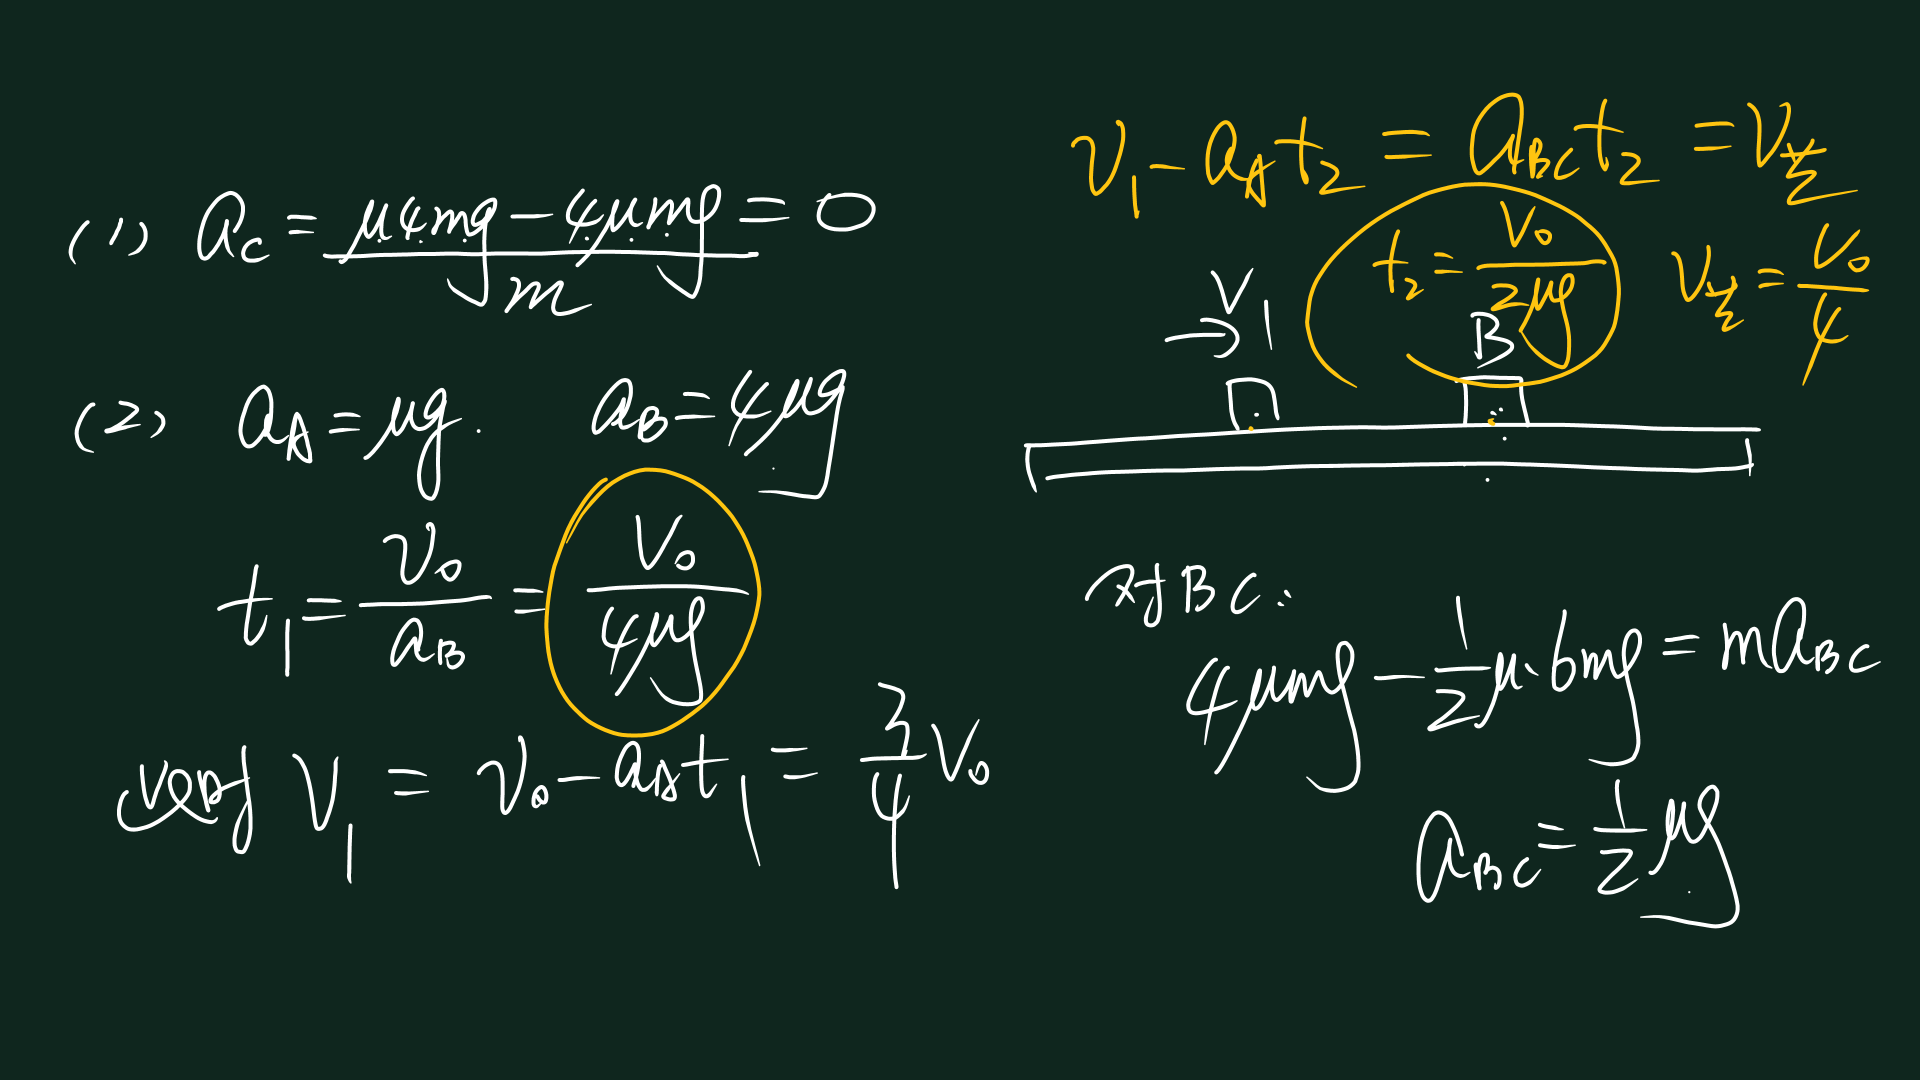 (1) a_C = (μ4mg - 4μmg)/m = 0
(2) a_A = μg. a_B = 4μg
t_1 = v_0/a_B = v_0/(4μg)
此时 v_1 = v_0 - a_A t_1 = 3/4 v_0
v_1 - a_A t_2 = a_BC t_2 = v_共
t_2 = v_0/(2μg) v_共 = v_0/4
v_1 B
对BC:
4μmg - 1/2 μ·6mg = ma_BC
a_BC = 1/2 μg